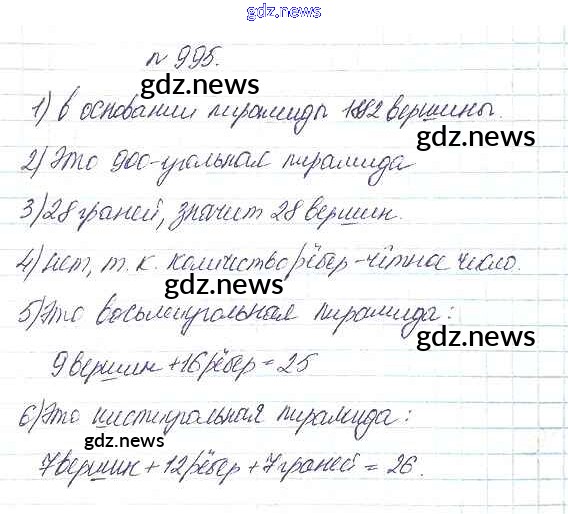 gdz.news
№ 995.
gdz.news
1) В основании пирамиды 192 вершины.
gdz.news
2) Это 900-угольная пирамида
gdz.news
3) 28 граней, значит 28 вершин.
4) нет, т. к. количество рёбер - чётное число.
gdz.news
5) Это восьмиугольная пирамида:
gdz.news
9 вершин + 16 рёбер = 25
6) Это шестиугольная пирамида:
gdz.news
7 вершин + 12 рёбер + 7 граней = 26.
gdz.news